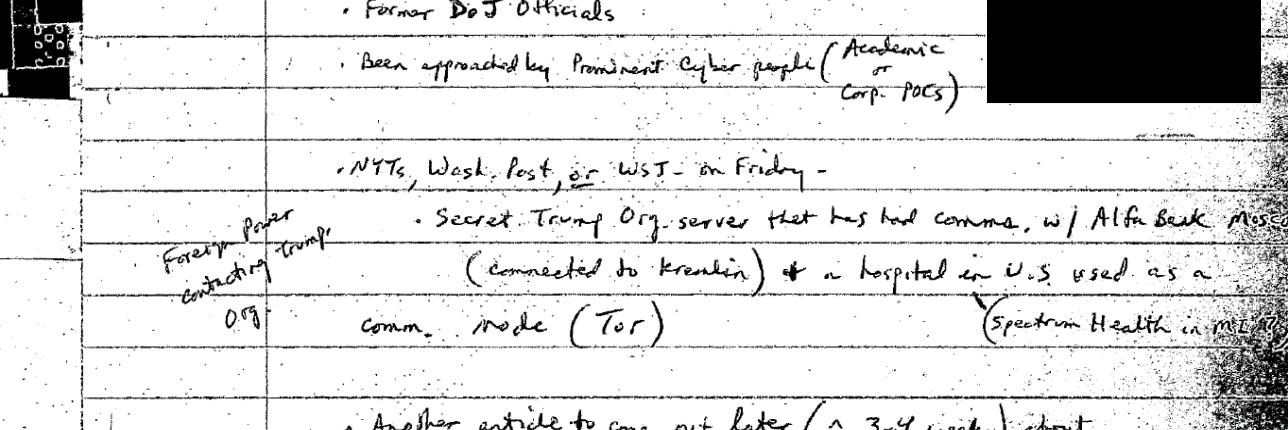 • Former DoJ Officials
• Been approached by Prominent Cyber people (Academic
or
Corp. POCs)
• NYTs, Wash. Post, or WSJ - on Friday -
• Secret Trump Org. server that has had comms. w/ Alfa Bank Mosc
Foreign Power
contacting Trump.
Org.
(connected to Kremlin) + a hospital in U.S used as a
comm. node (Tor)
(Spectrum Health in MI ?)
• Another article to come out later (~ 3-4 weeks) about